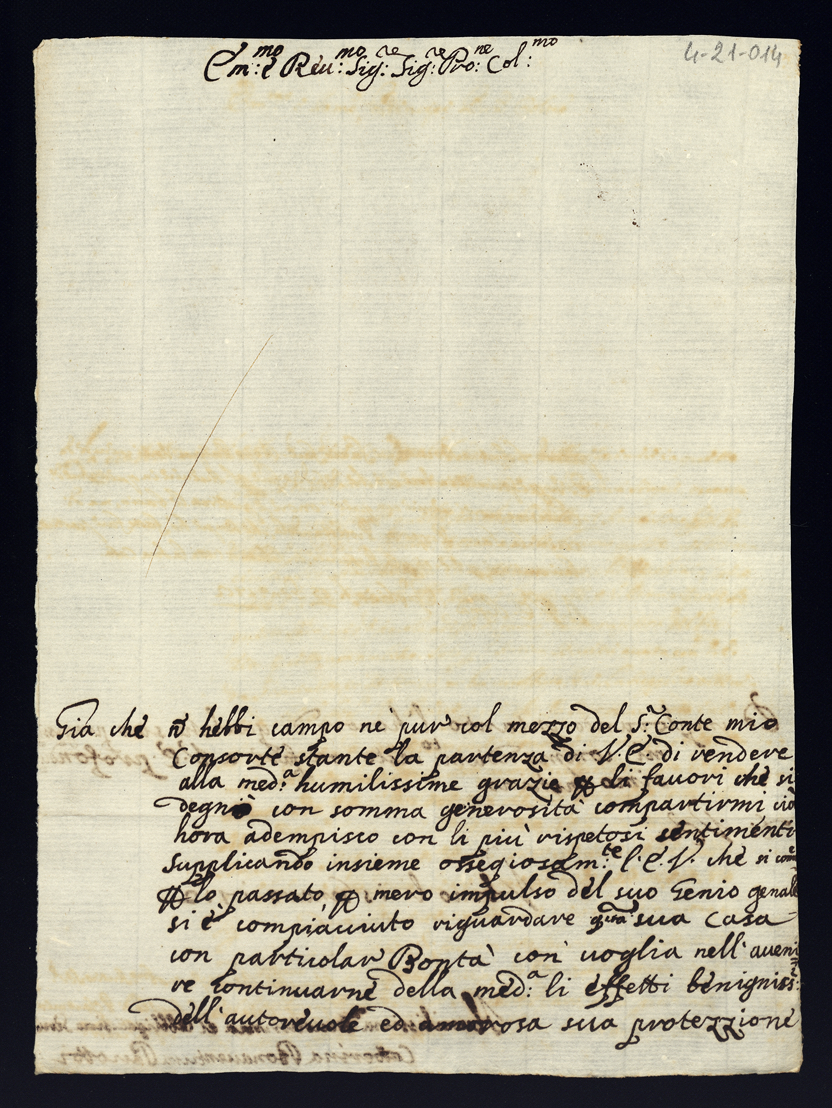 4-21-014
Em:mo e Reu:mo Sig:re Sig:re Pro:ne Col:mo
Gia che ñ hebbi campo ne pur col mezzo del S:r Conte mio
Consorte stante la partenza di V.E. di rendere
alla med:a humilissime grazie ꝑ li fauori che si
degnò con somma generosità compartirmi ciò
hora adempisco con li più rispetosi sentimenti
supplicando insieme ossegiosam:te l'E.V. che si come
ꝑ lo passato, ꝑ mero impulso del suo Genio
si è compiacciuto riguardare sua Casa
con particolar Bontà con uoglia nell'aueni
re continuarne della med:a li effetti benigniss:i
dell'autoreuole ed amorosa sua protezzione